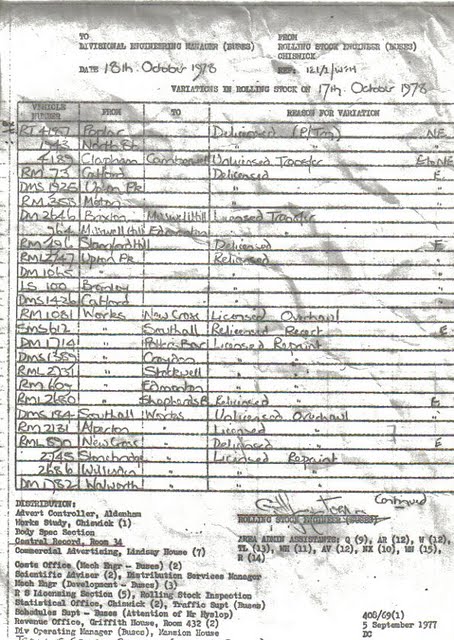 TO FROM
DIVISIONAL ENGINEERING MANAGER (BUSES) ROLLING STOCK ENGINEER (BUSES)
CHISWICK
DATE 18th October 1978 REF: 121/2/WJH
VARIATIONS IN ROLLING STOCK ON 17th October 1978
VEHICLE NUMBER FROM TO REASON FOR VARIATION
RT 4197 Poplar Delicensed (P/Tng) NE
1943 North St " "
4189 Clapham Camberwell Unlicensed Transfer E to NE
RM 73 Catford Delicensed E
DMS 1925 Upton Pk "
RM 353 Merton "
DM 2646 Brixton Muswell Hill Licensed Transfer
964 Muswell Hill Edmonton " "
RM 496 Stamford Hill Delicensed E
RML 2747 Upton Pk Relicensed
DM 1065 " "
LS 100 Bromley "
DMS 1426 Catford "
RM 1081 Works New Cross Licensed Overhaul
SMS 612 " Southall Relicensed Recert E
DM 1714 " Potters Bar Licensed Repaint
DMS 1389 " Croydon " "
RML 2731 " Stockwell " "
RM 609 " Edmonton " "
RML 2680 " Shepherds B Relicensed E
DMS 134 Southall Works Unlicensed Overhaul
RM 2131 Alperton " Licensed "
RML 890 New Cross " Delicensed " E
2745 Stonebridge " Licensed Repaint
2686 Willesden " " "
DM 1782 Walworth " " "
Continued
DISTRIBUTION: ROLLING STOCK ENGINEER (BUSES)
Advert Controller, Aldenham
Works Study, Chiswick (1)
Body Spec Section
Central Record, Room 34
Commercial Advertising, Lindsay House (7)
AREA ADMIN ASSISTANTS: Q (9), AR (12), W (12),
TL (13), WH (11), AV (12), NX (10), UN (15),
R (14)
Costs Office (Mech Engr - Buses) (2)
Scientific Adviser (2), Distribution Services Manager
Mech Engr (Development - Buses) (3)
R S Licensing Section (5), Rolling Stock Inspection
Statistical Office, Chiswick (2), Traffic Supt (Buses)
Schedules Supt - Buses (Attention of Mr Hyslop)
Revenue Office, Griffith House, Room 432 (2)
Div Operating Manager (Buses), Mansion House
408/69(1)
5 September 1977
DC